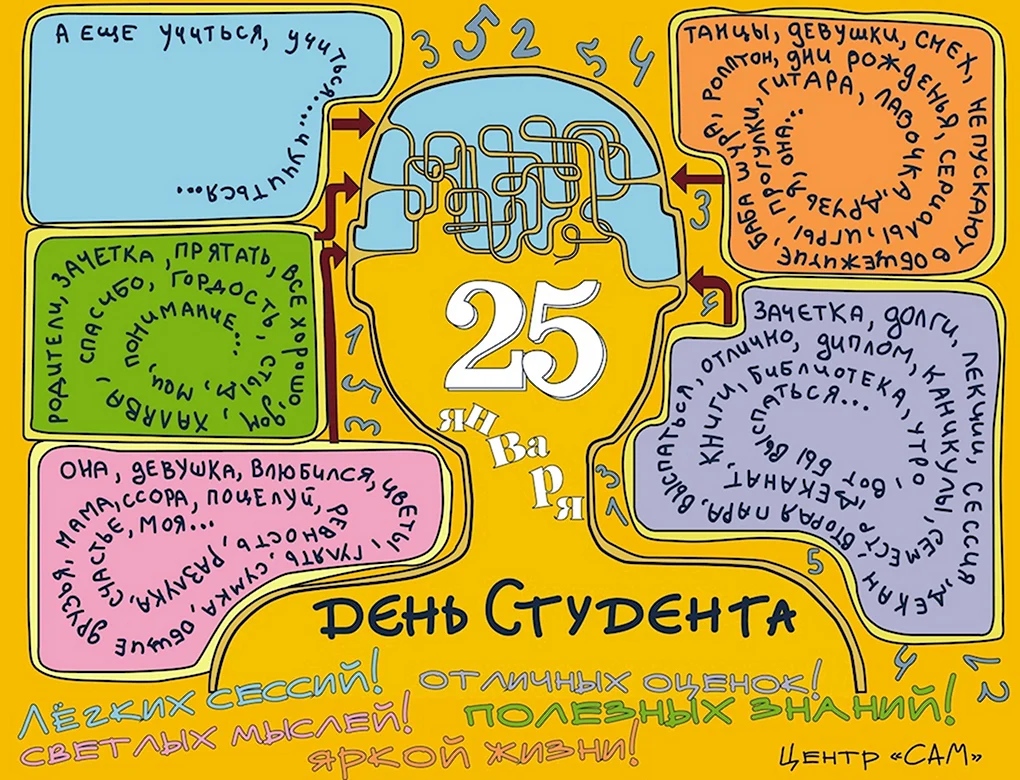 3 5 2 5 4
А ЕЩЕ УЧИТЬСЯ, УЧИТЬСЯ... И УЧИТЬСЯ...
ТАНЦЫ, ДЕВУШКИ, СМЕХ, НЕ ПУСКАЮТ В ОБЩЕЖИТИЕ, БАБА ШУРА, РОЛЛТОН, ДНИ РОЖДЕНЬЯ, СЕРИАЛЫ, ИГРЫ, ПРОГУЛКИ, ГИТАРА, ЛАВОЧКА, ДРУЗЬЯ, ОНА...
3
РОДИТЕЛИ, ЗАЧЕТКА, ПРЯТАТЬ, ВСЕ ХОРОШО, ДОМ, ХАЛЯВА, СПАСИБО, ГОРДОСТЬ, СТЫД, МОИ, ПОНИМАНИЕ...
25
января
1 5 3
4
ЗАЧЕТКА, ДОЛГИ, ЛЕКЦИИ, СЕССИЯ, ДЕКАН, ВТОРАЯ ПАРА, ВЫСПАТЬСЯ, ОТЛИЧНО, ДИПЛОМ, КАНИКУЛЫ, СЕМЕСТР, ДЕКАНАТ, КНИГИ, БИБЛИОТЕКА, УТРО, ВОТ БЫ ВЫСПАТЬСЯ...
ОНА, ДЕВУШКА, ВЛЮБИЛСЯ, ЦВЕТЫ, ГУЛЯТЬ, СУМКА, ОБЩИЕ ДРУЗЬЯ, МАМА, ССОРА, ПОЦЕЛУЙ, РЕВНОСТЬ, РАЗЛУКА, СЧАСТЬЕ, МОЯ...
5
ДЕНЬ СТУДЕНТА
ЛЁГКИХ СЕССИЙ!
ОТЛИЧНЫХ ОЦЕНОК!
СВЕТЛЫХ МЫСЛЕЙ!
ПОЛЕЗНЫХ ЗНАНИЙ!
ЯРКОЙ ЖИЗНИ!
ЦЕНТР «САМ»